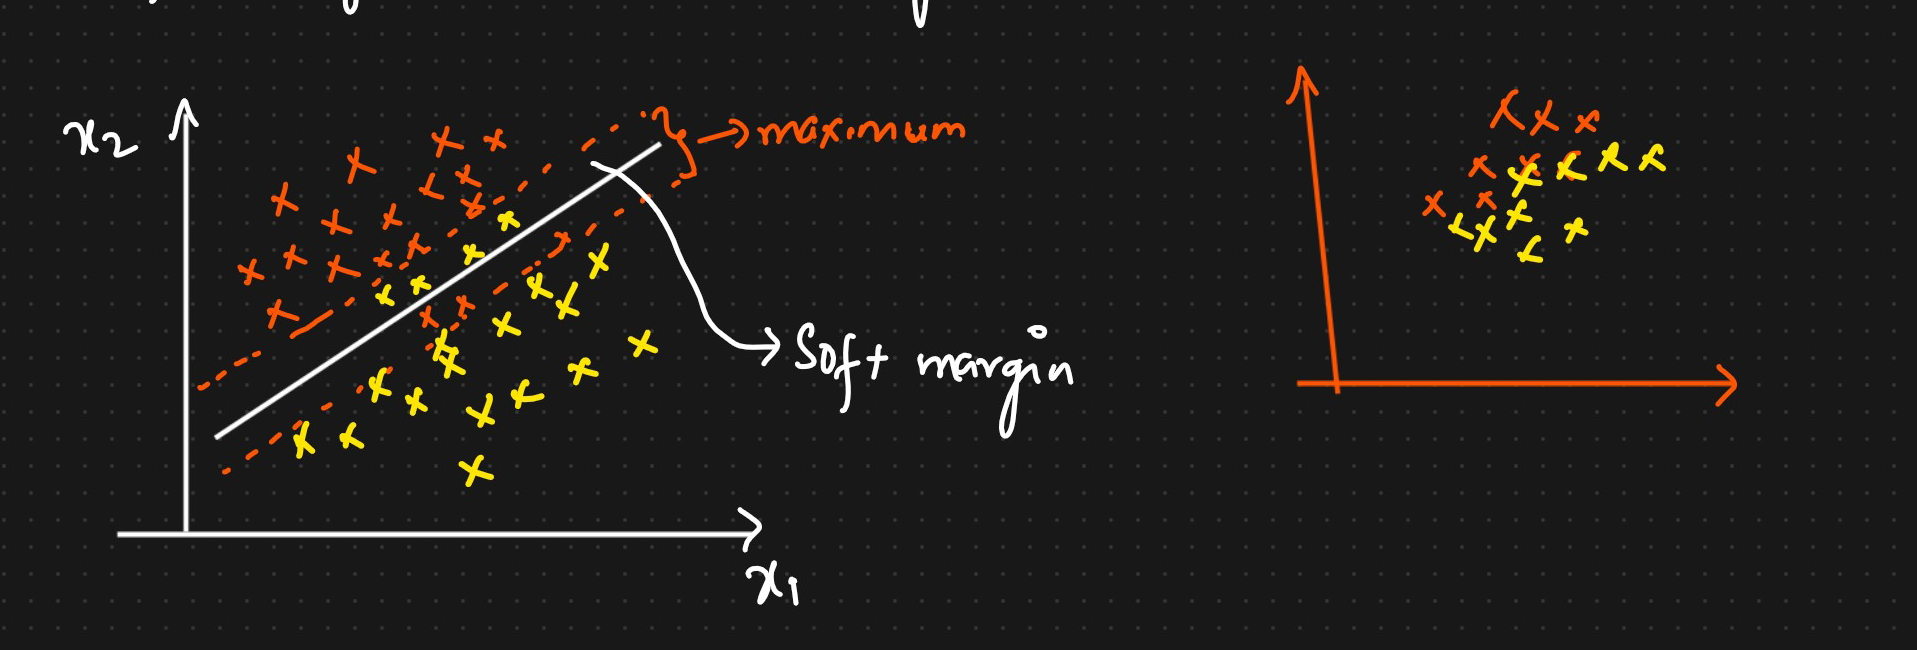 x2
maximum
Soft margin
x1